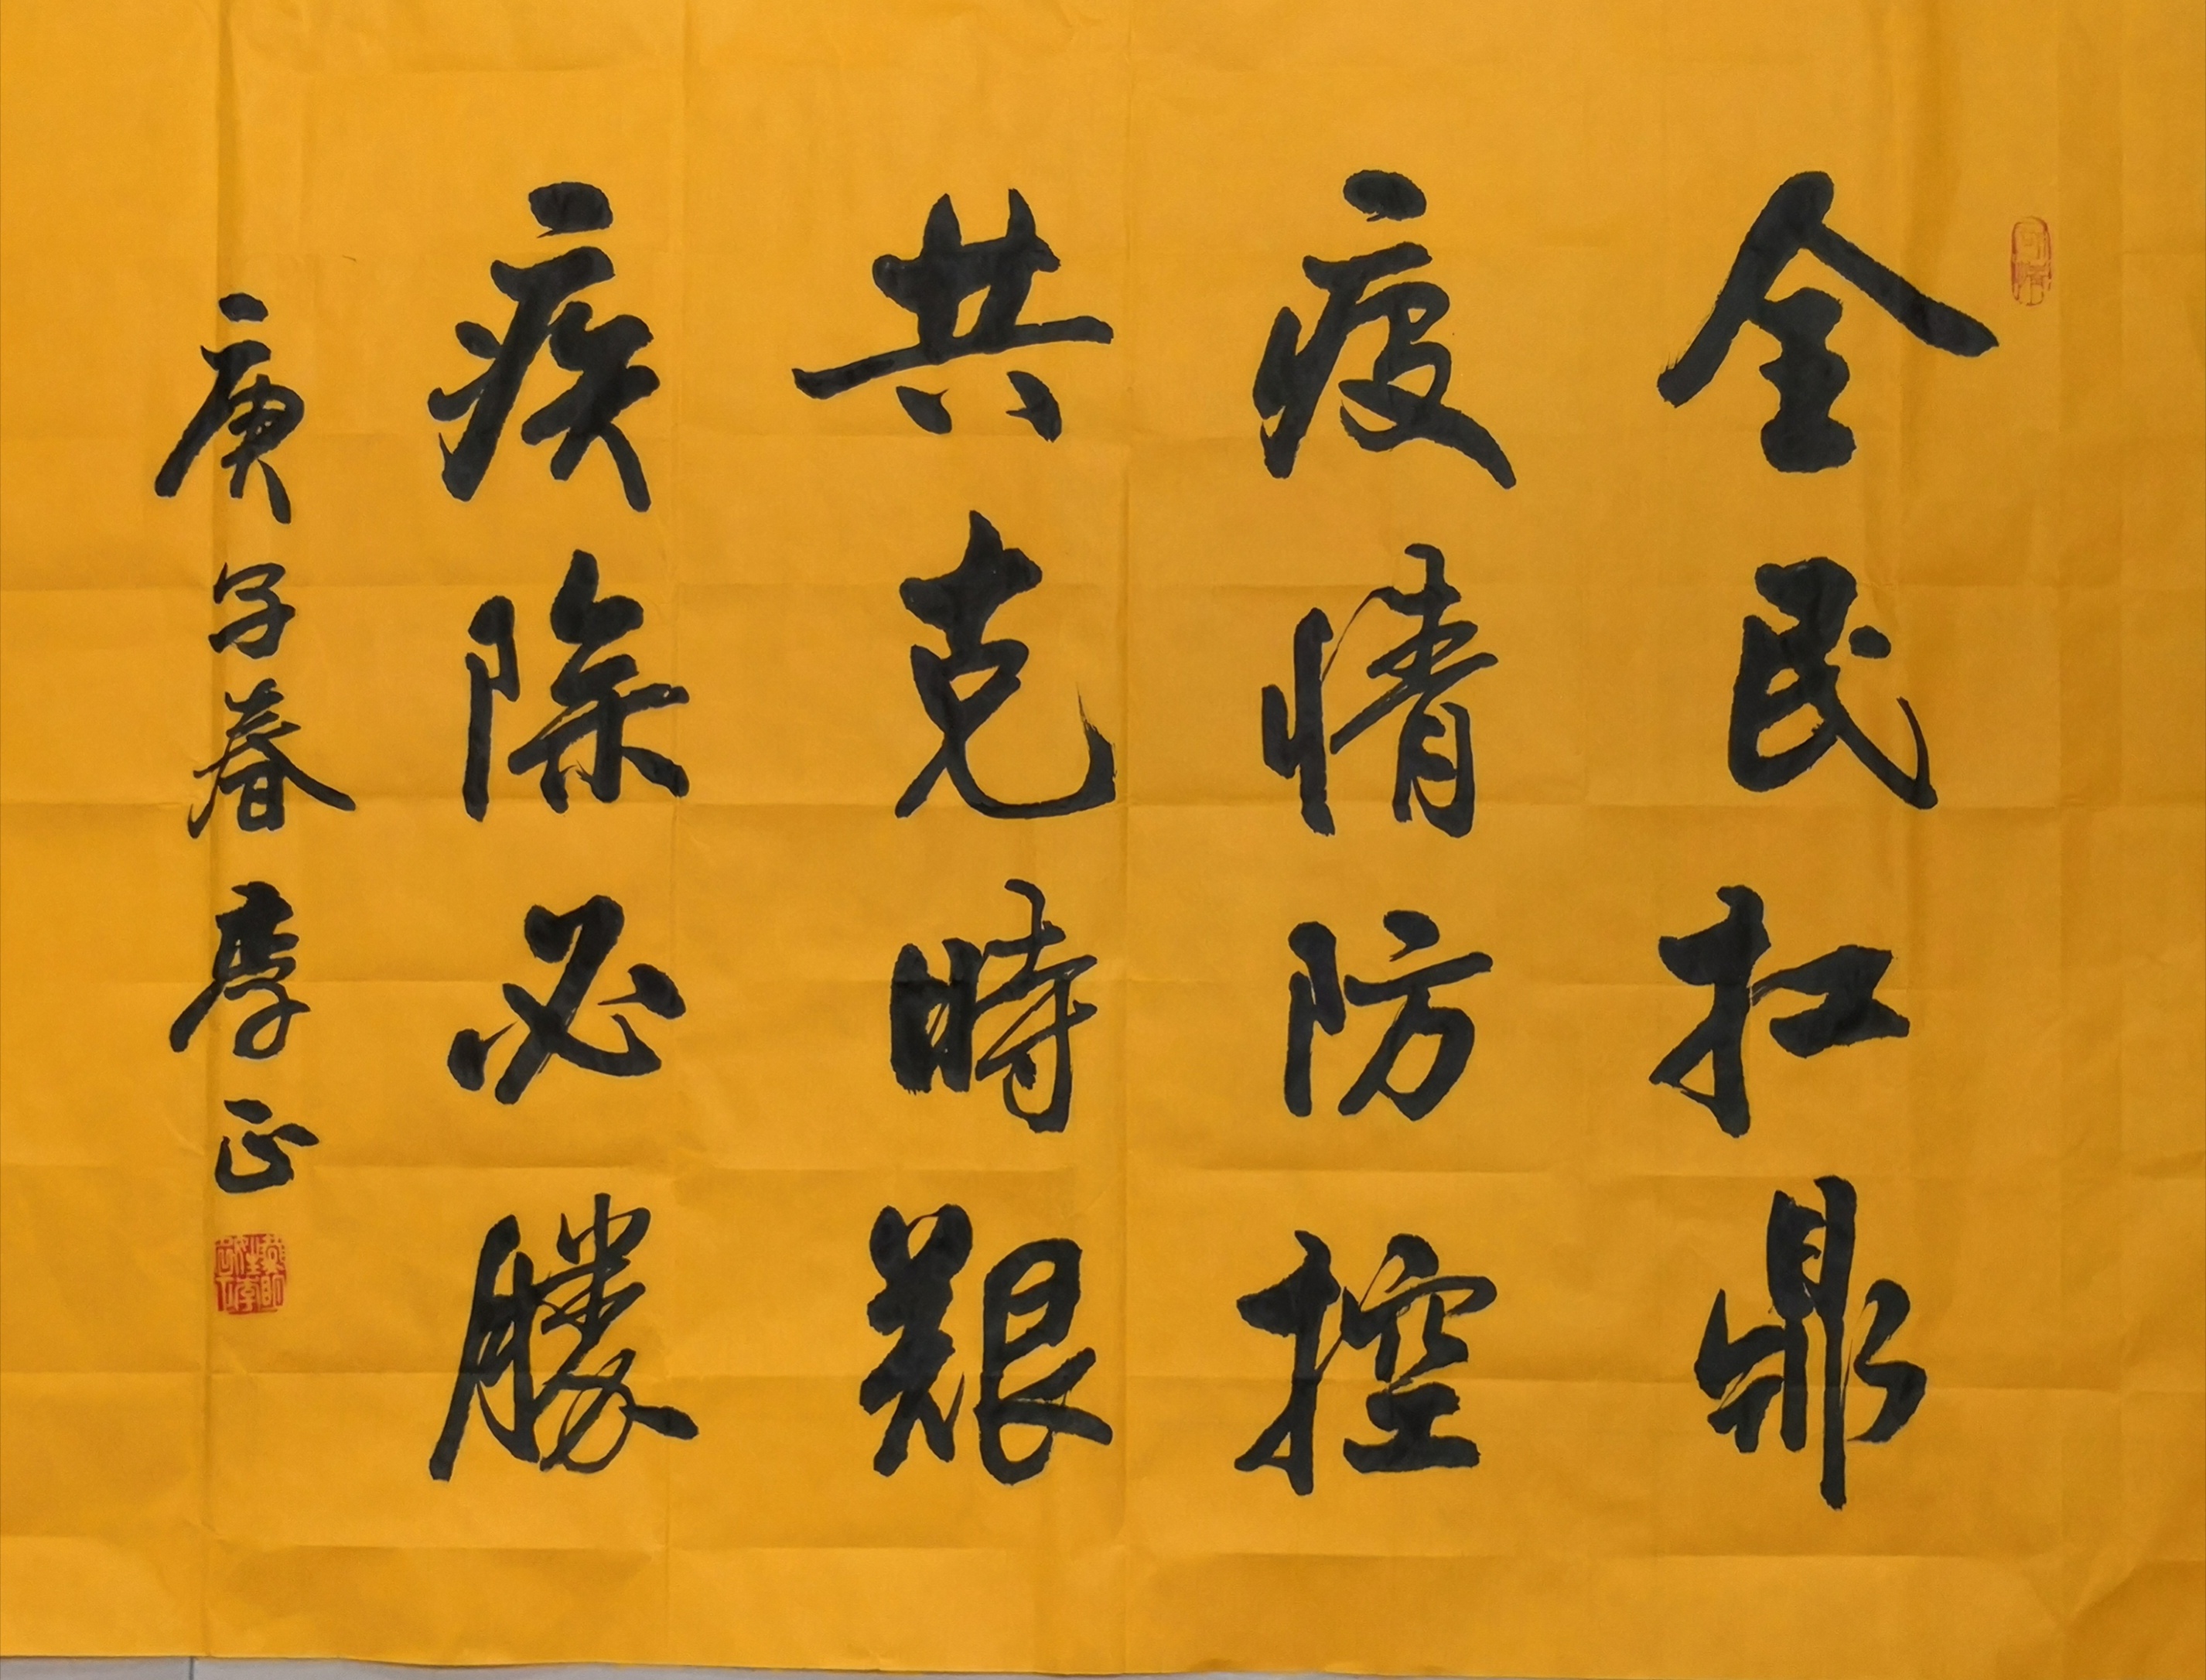 全民扛鼎
疫情防控
共克時艱
疾除必勝
庚子春 李正